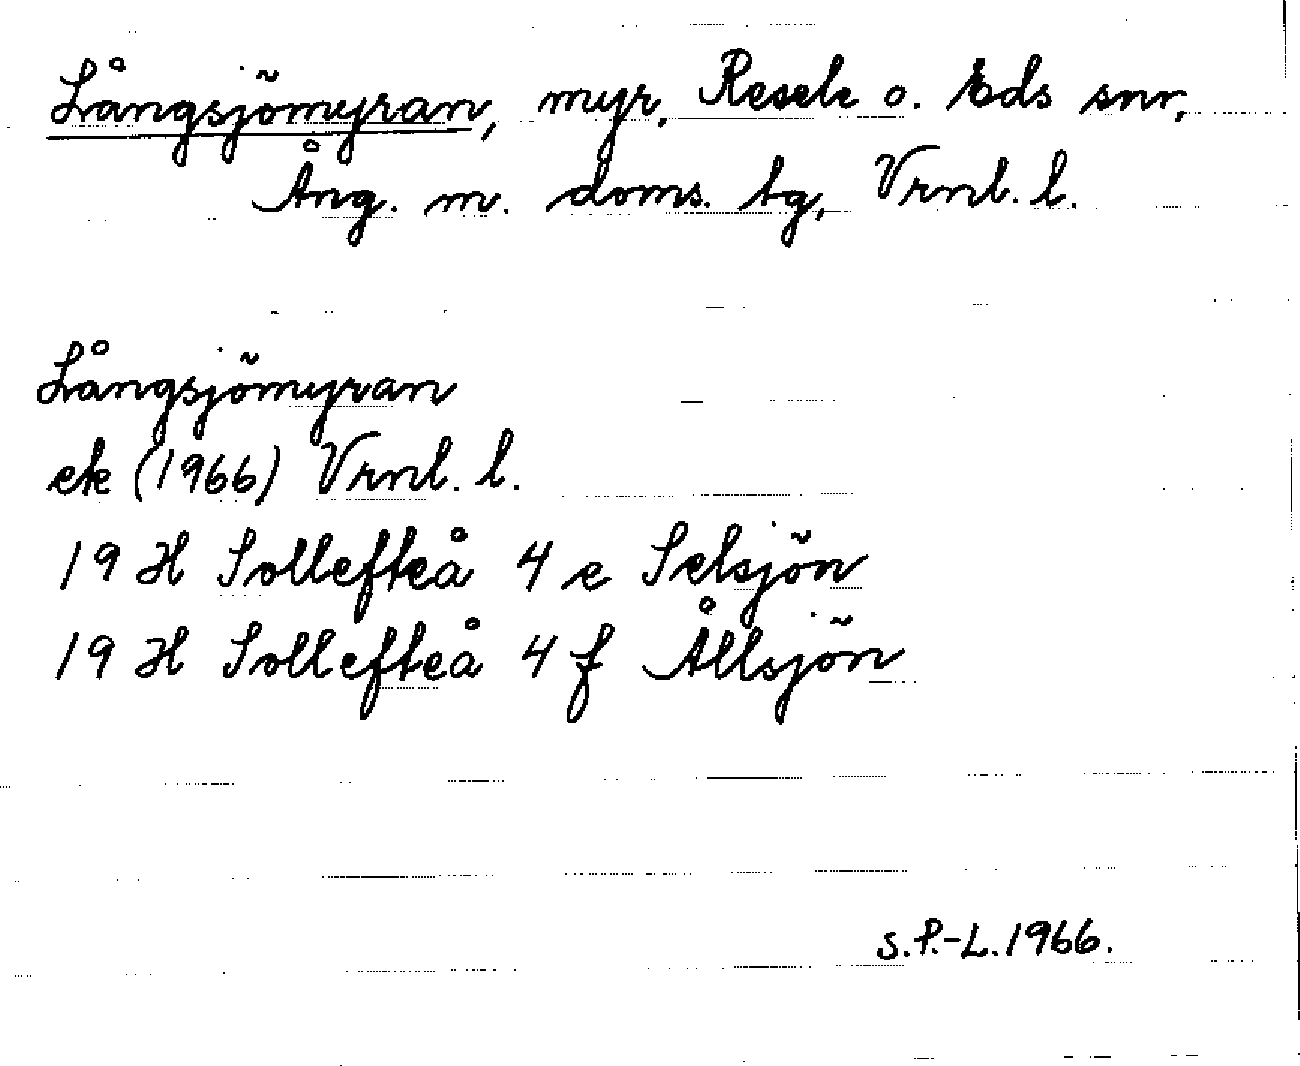 Långsjömyran, myr, Resele o. Eds snr,
Ång. m. doms. tg, Vrnl. l.
Långsjömyran
ek (1966) Vrnl. l.
19 H Sollefteå 4 e Selsjön
19 H Sollefteå 4 f Ållsjön
S.P.-L.1966.